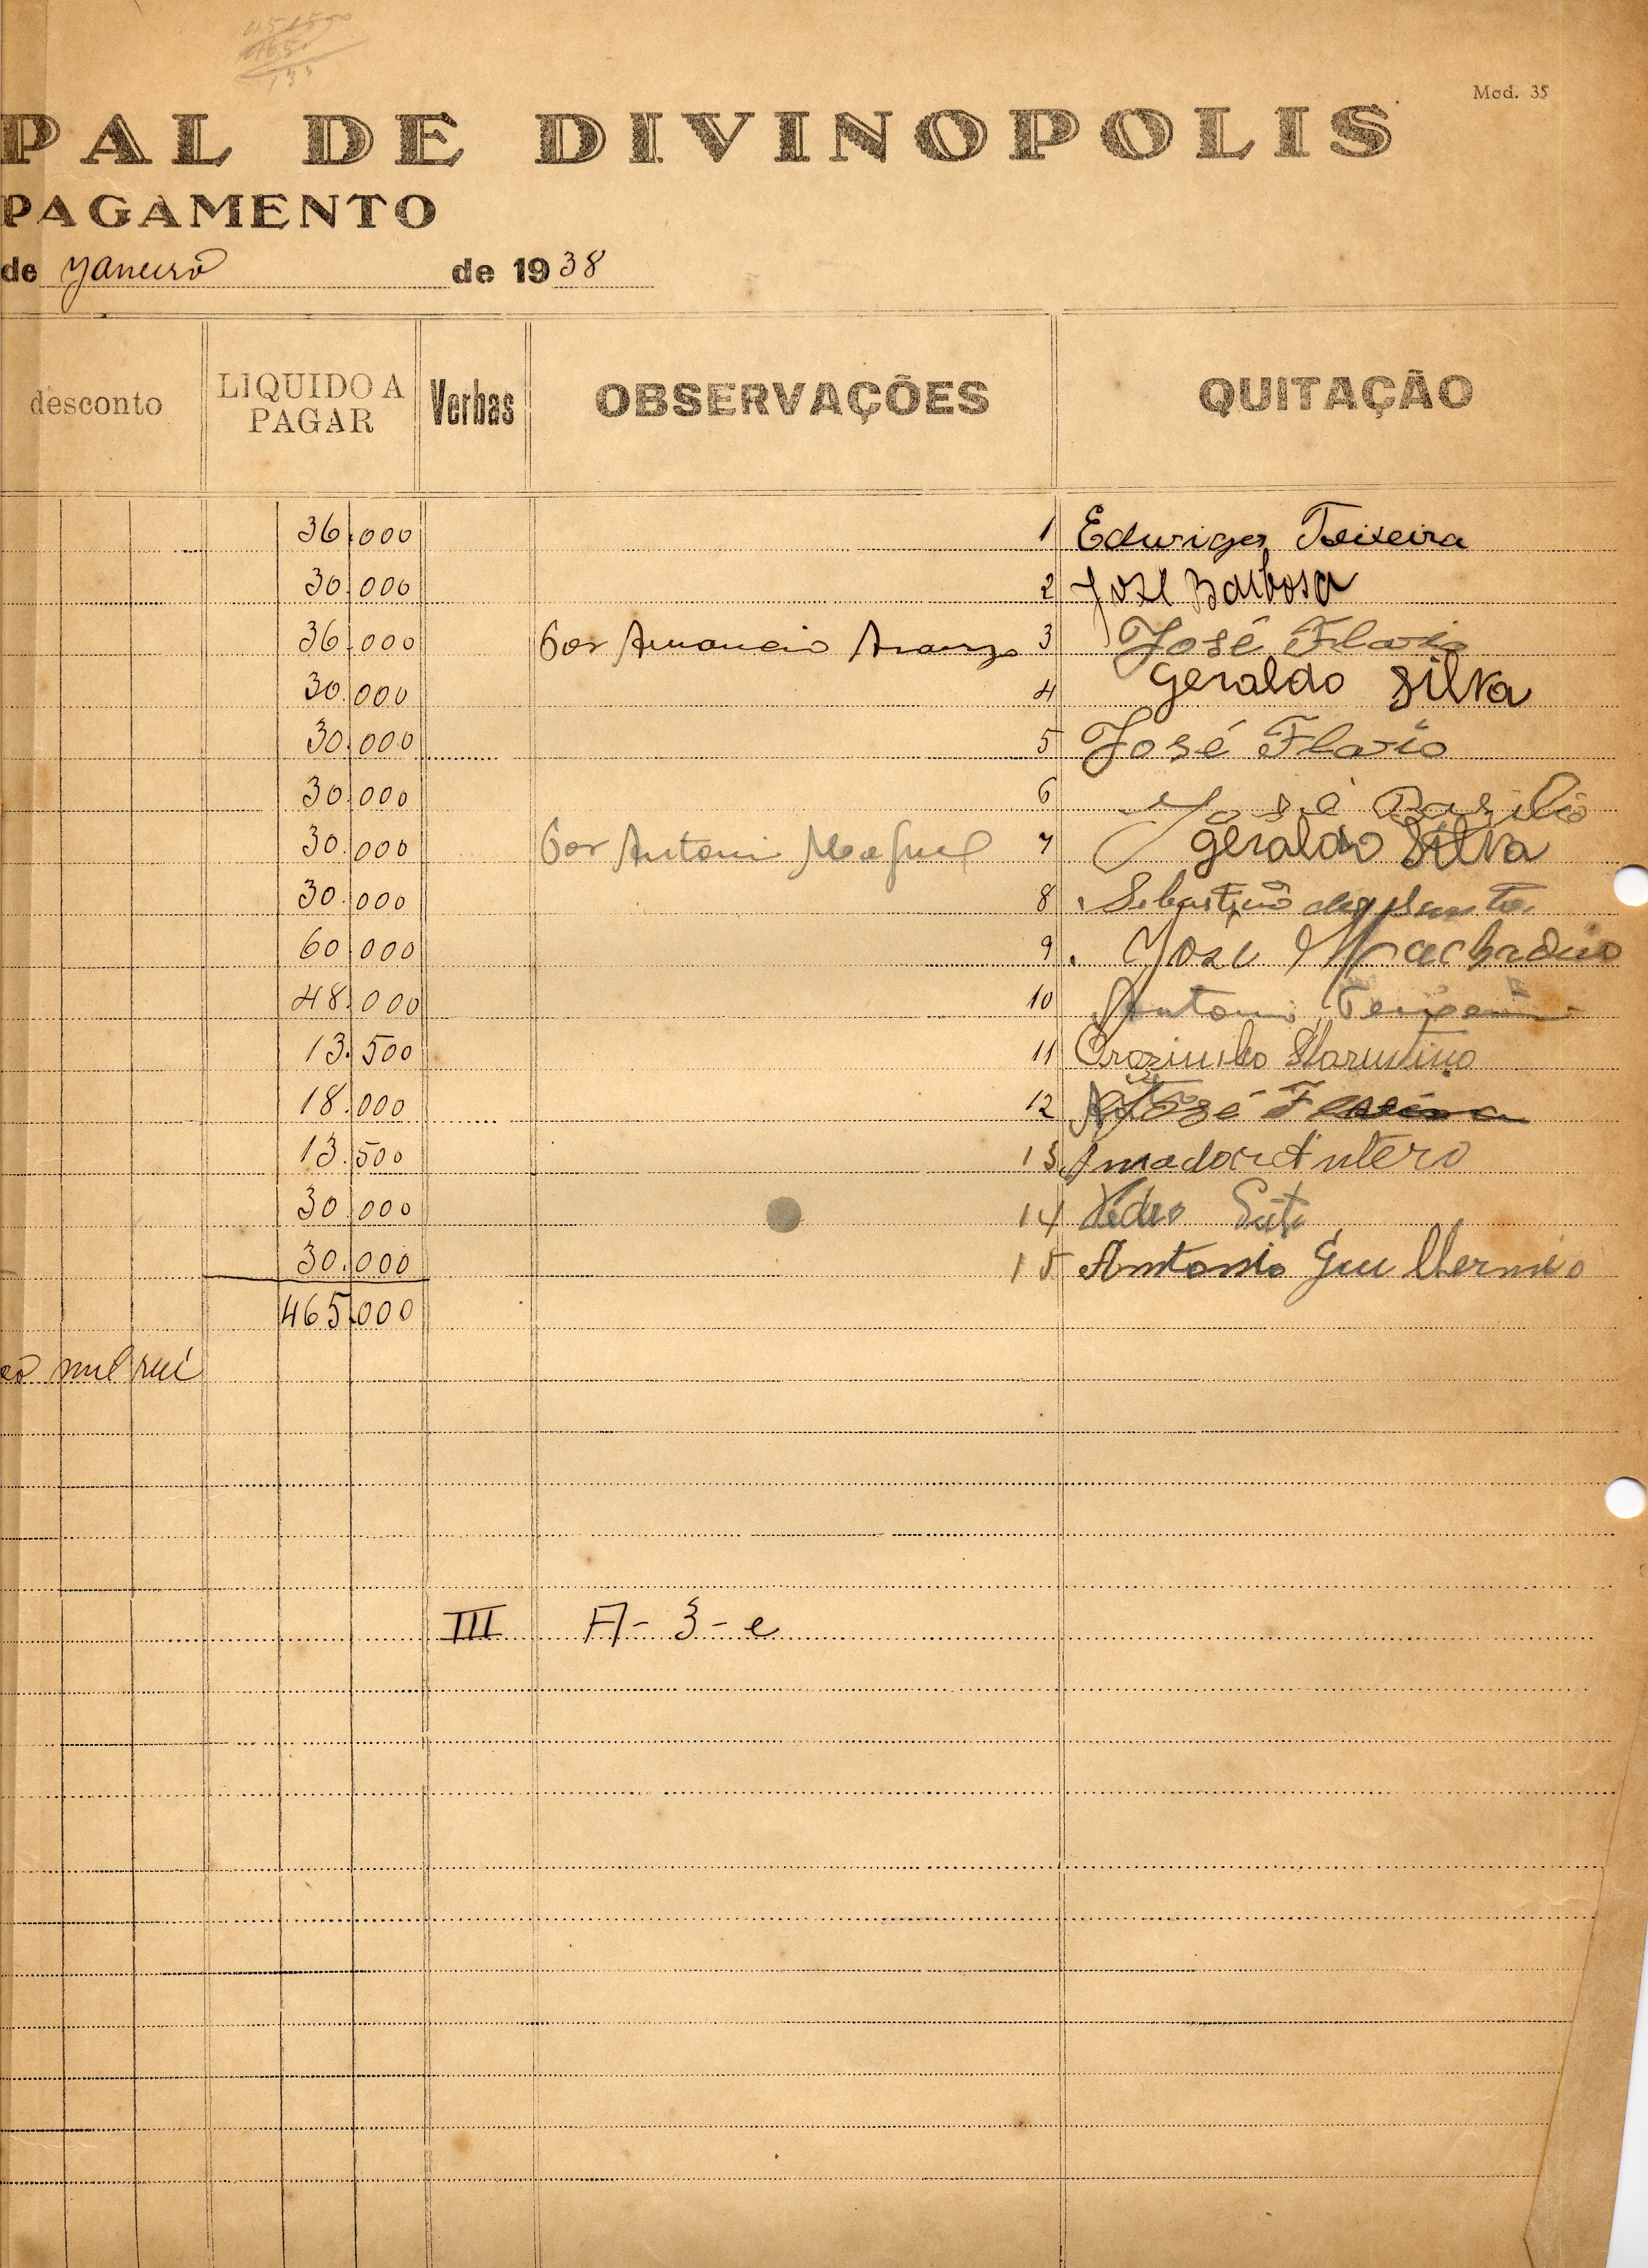 Mod. 35
PAL DE DIVINOPOLIS
PAGAMENTO
de Janeiro de 1938
desconto LIQUIDO A PAGAR Verbas OBSERVAÇÕES QUITAÇÃO
36.000 1 Edwiges Teixeira
30.000 2 José Barbosa
36.000 Por Amancio 3 José Flavio
30.000 4 Geraldo Silva
30.000 5 José Flavio
30.000 6 José Basilio
30.000 Por Antoni 7 Geraldo Silva
30.000 8 Sebastião
60.000 9 José
48.000 10 Antonio
13.500 11 Orozimbo
18.000 12 José
13.500 13 Amador Antero
30.000 14 Pedro
30.000 15 Antonio Guilhermio
465.000
mil reis
III A - 3 - e